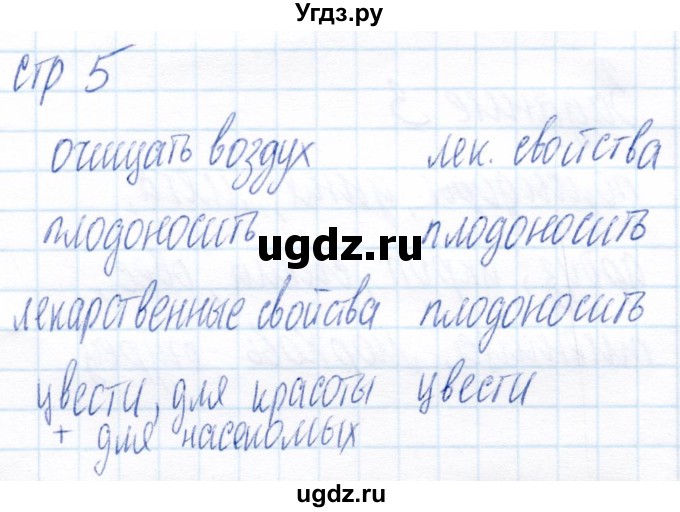 Угдз.ру
стр 5
очищать воздух лек. свойства
плодоносить плодоносить
ugdz.ru
лекарственные свойства плодоносить
цвести, для красоты цвести
+ для насекомых
ugdz.ru